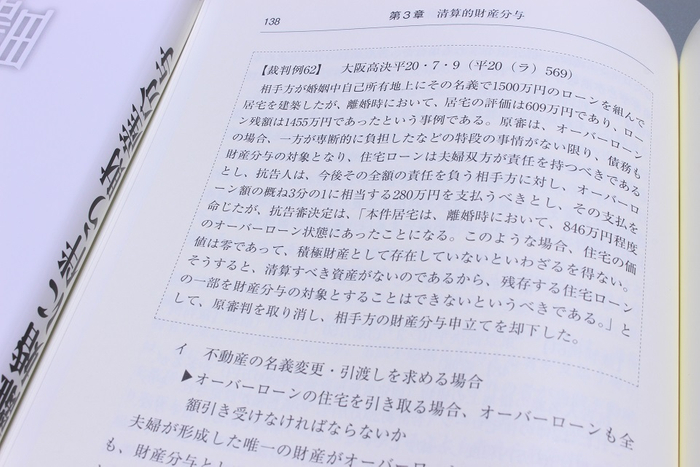 138
第3章 清算的財産分与
【裁判例62】 大阪高決平20・7・9(平20(ラ)569)
相手方が婚姻中自己所有地上にその名義で1500万円のローンを組んで
居宅を建築したが、離婚時において、居宅の評価は609万円であり、ロー
ン残額は1455万円であったという事例である。原審は、オーバーローン
の場合、一方が専断的に負担したなどの特段の事情がない限り、債務も
財産分与の対象となり、住宅ローンは夫婦双方が責任を持つべきである
とし、抗告人は、今後その全額の責任を負う相手方に対し、オーバーロ
ーン額の概ね3分の1に相当する280万円を支払うべきとし、その支払を
命じたが、抗告審決定は、「本件居宅は、離婚時において、846万円程度
のオーバーローン状態にあったことになる。このような場合、住宅の価
値は零であって、積極財産として存在していないといわざるを得ない。
そうすると、清算すべき資産がないのであるから、残存する住宅ローン
の一部を財産分与の対象とすることはできないというべきである。」と
して、原審判を取り消し、相手方の財産分与申立てを却下した。
イ 不動産の名義変更・引渡しを求める場合
▶オーバーローンの住宅を引き取る場合、オーバーローンも全
額引き受けなければならないか
夫婦が形成した唯一の財産がオーバーロー
も、財産分与とし